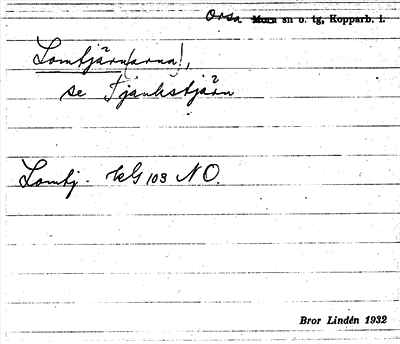 Orsa Mora sn o. tg, Kopparb. l.
Lomtjärn(arna),
se Tjäukstjärn
Lomtj. kG 103 NO.
Bror Lindén 1932